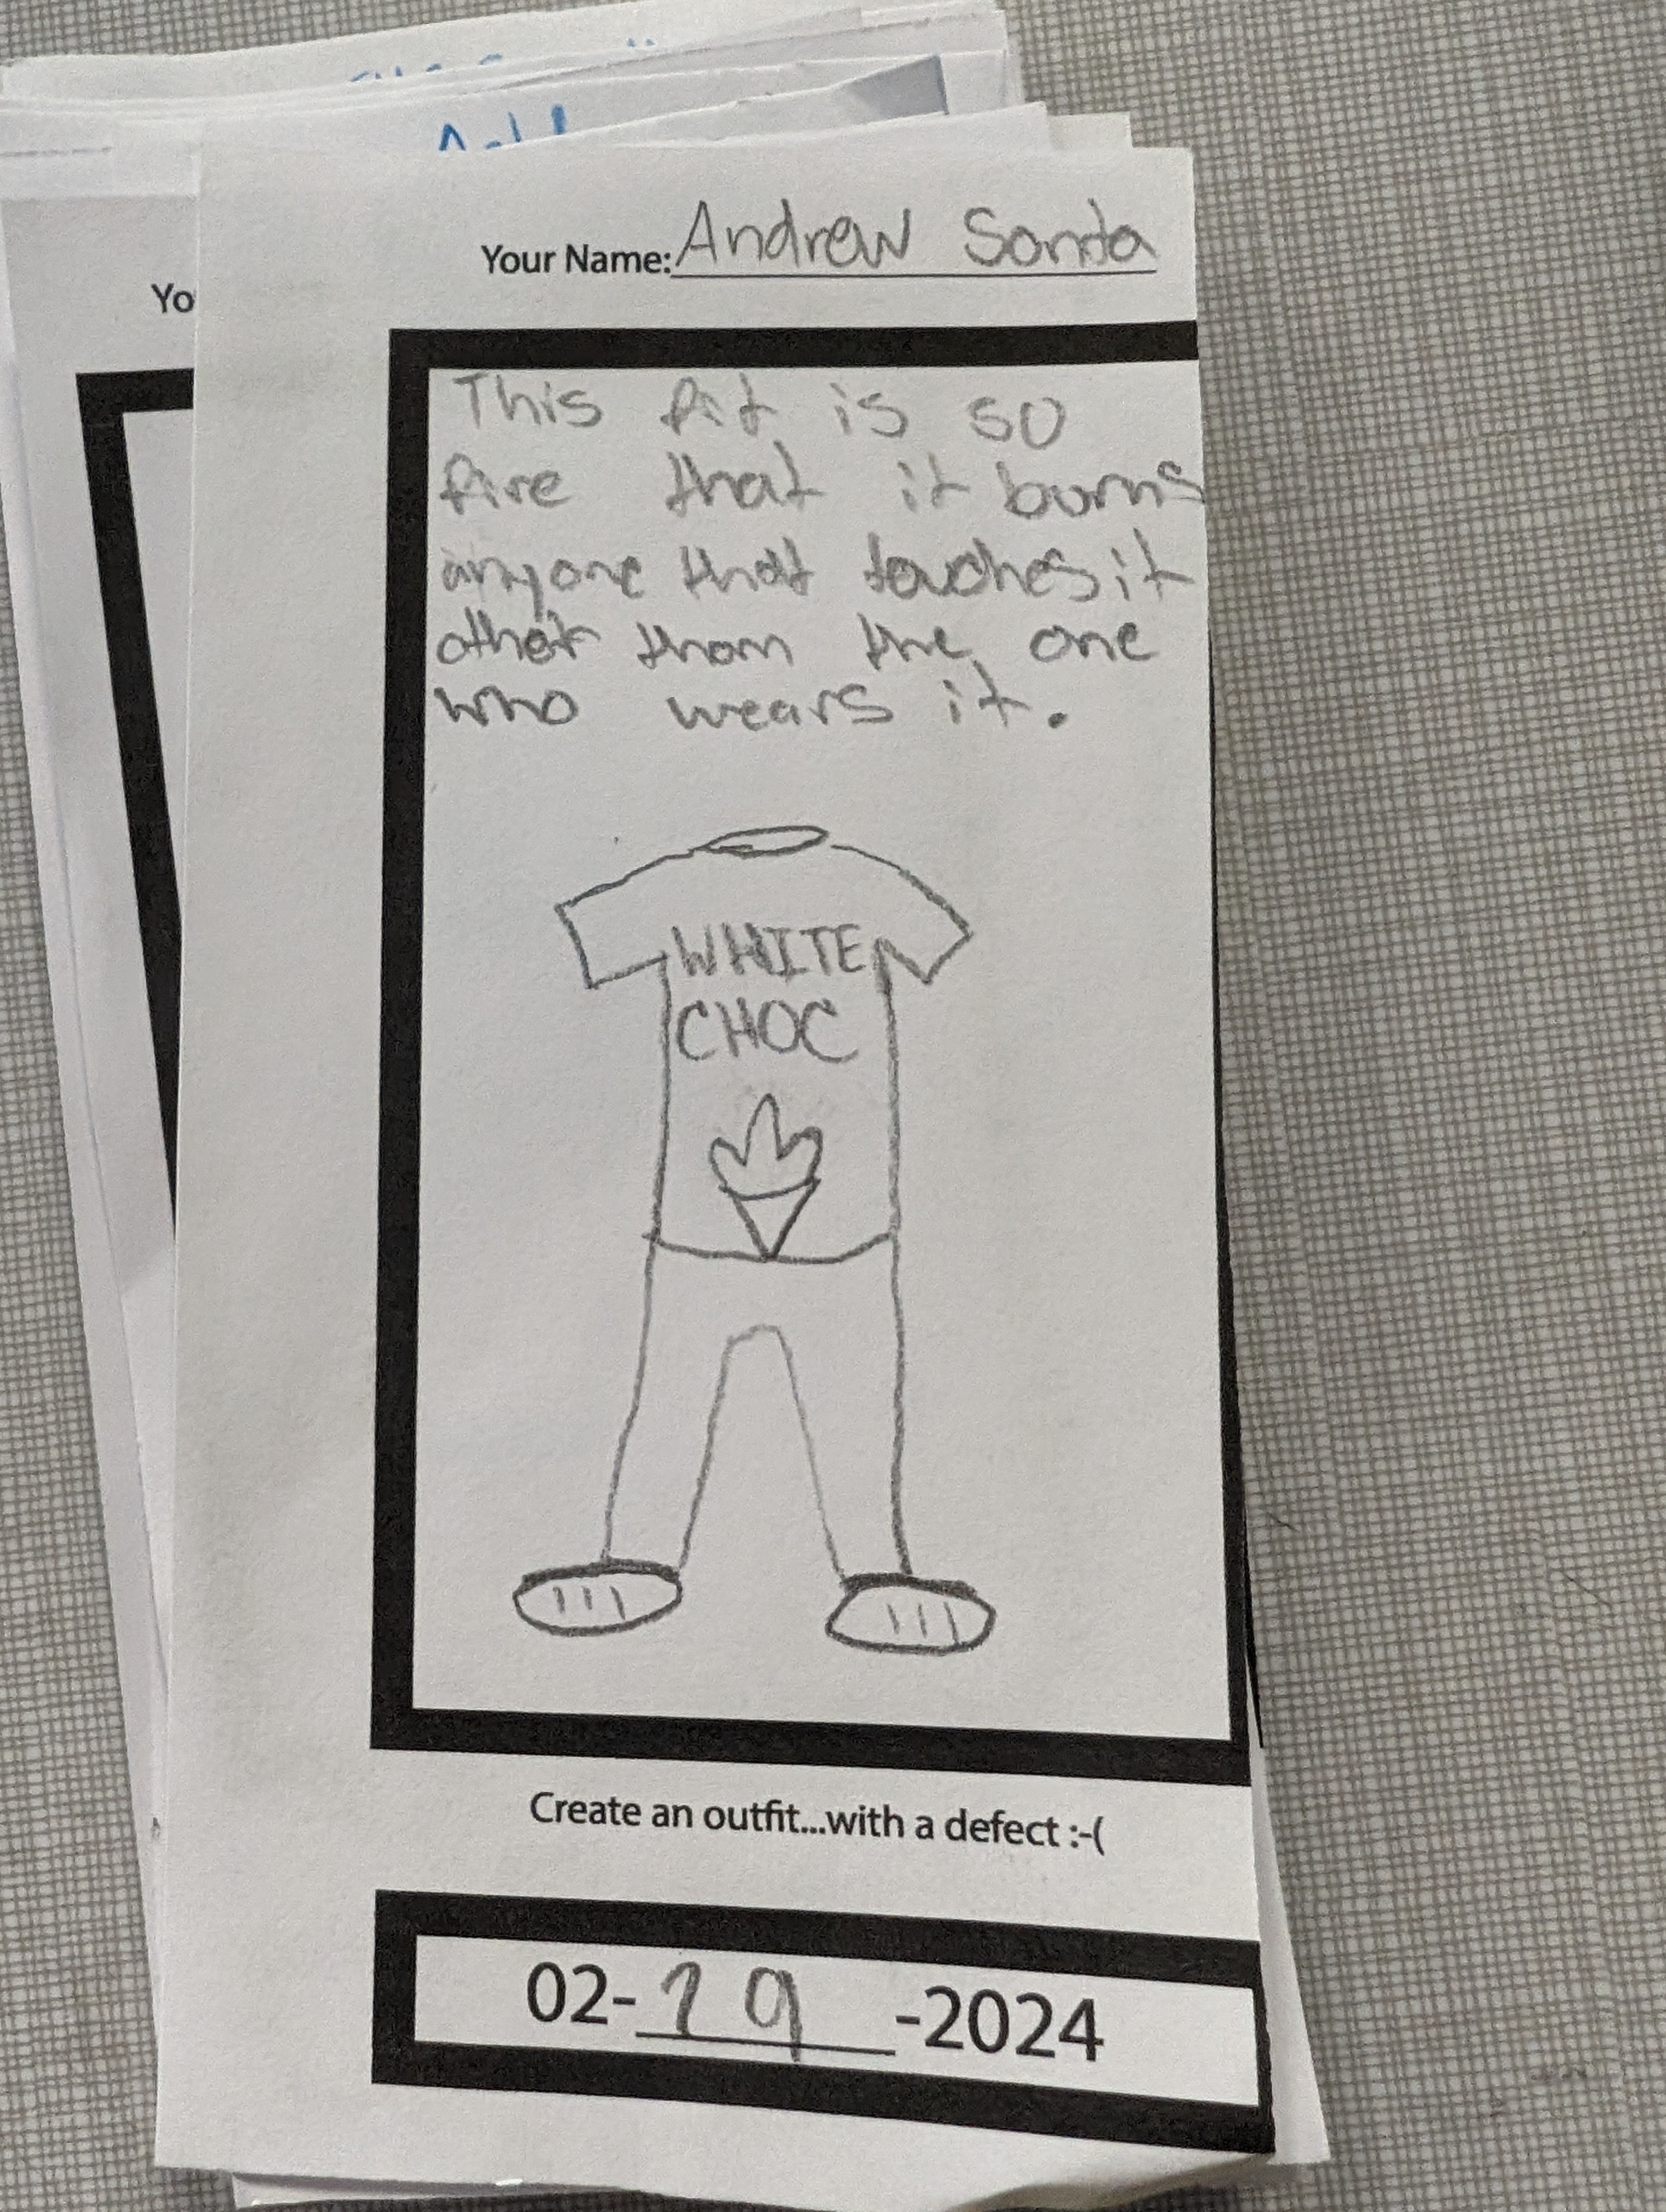 Your Name: Andrew Santa
Yo
This fit is so
fire that it burns
anyone that touches it
other than the one
who wears it.
WHITE
CHOC
Create an outfit...with a defect :-(
02-19-2024